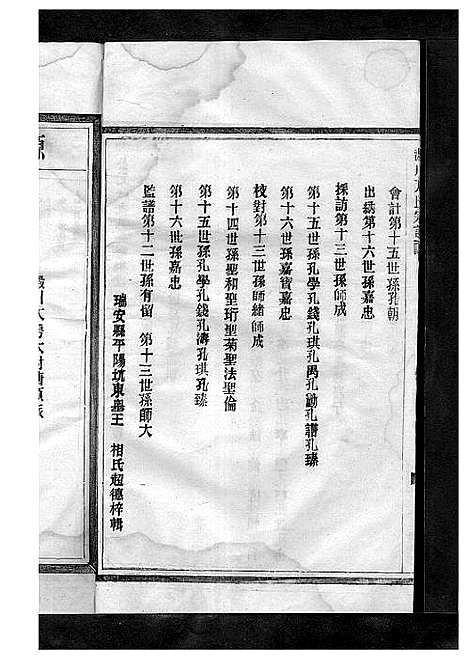 會計第十五世孫孔朝
出納第十六世孫嘉忠
採訪第十三世孫師成
第十五世孫孔學孔錢孔琪孔禺孔勛孔譜孔臻
第十六世孫嘉寶嘉忠
校對第十三世孫師緒師成
第十四世孫聖和聖珩聖菊聖法聖倫
第十五世孫孔學孔錢孔濤孔琪孔臻
第十六世孫嘉忠
監譜第十二世孫有留 第十三世孫師大
瑞安縣平陽坑東墨王 相氏超德梓輯
源